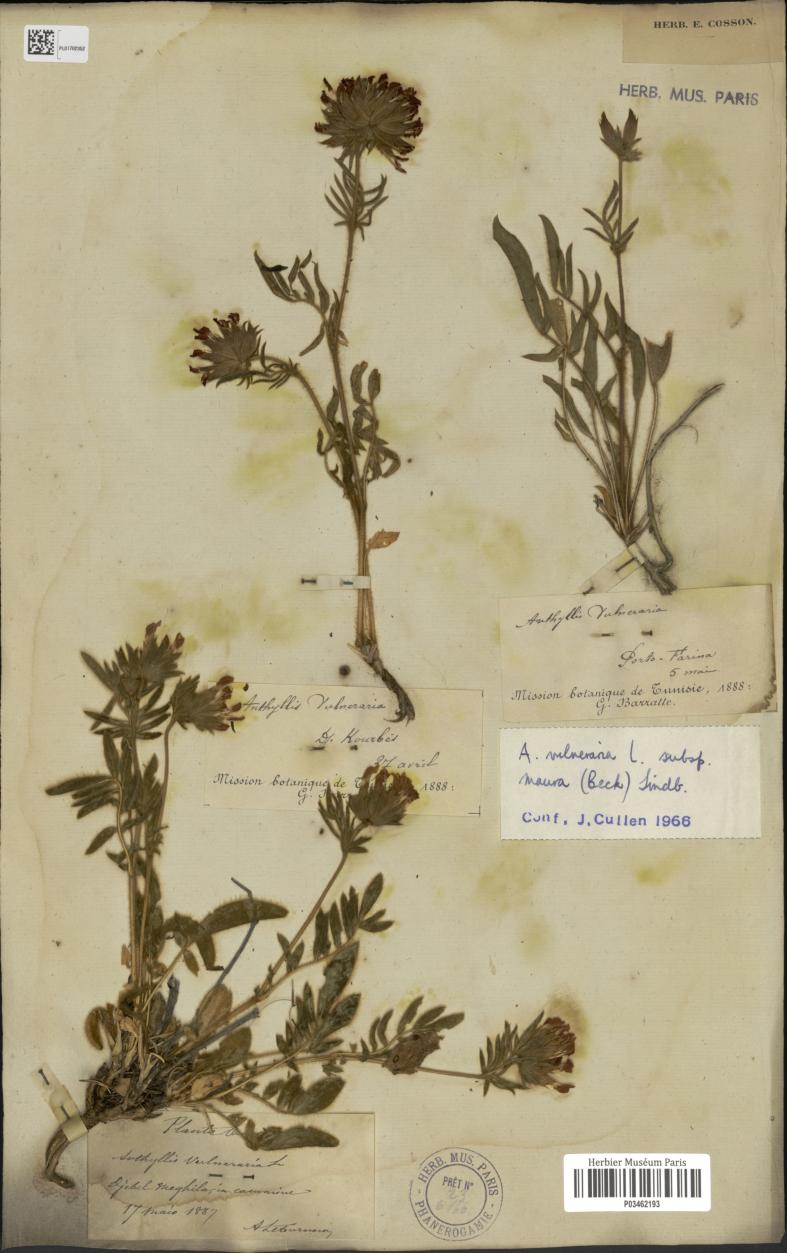 PL01702352
HERB. E. COSSON.
HERB. MUS. PARIS
Anthyllis Vulneraria
Porto-Farina
5 mai
Mission botanique de Tunisie, 1888:
G. Barratte.
Anthyllis Vulneraria
Dj. Kourbès
27 avril
Mission botanique de 1888:
G.
A. vulneraria L. subsp.
maura (Beck) Lindb.
Conf. J. Cullen 1966
Anthyllis Vulneraria L
Djebel Meghila, in cacumine
17 maio 1887
A. Letourneux
HERB. MUS. PARIS
PRÊT N°
PHANEROGAMIE
Herbier Muséum Paris
P03462193